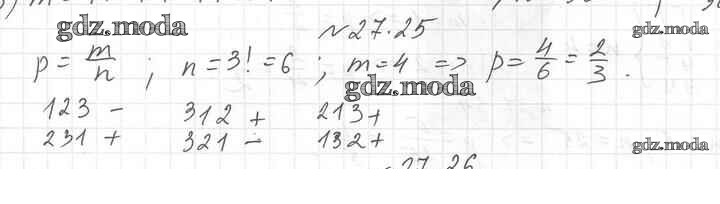 gdz.moda
№27.25
gdz.moda
p = m/n ; n = 3! = 6 ; m = 4 => p = 4/6 = 2/3 .
gdz.moda
123 − 312 + 213 +
231 + 321 − 132 +
gdz.moda
27.26